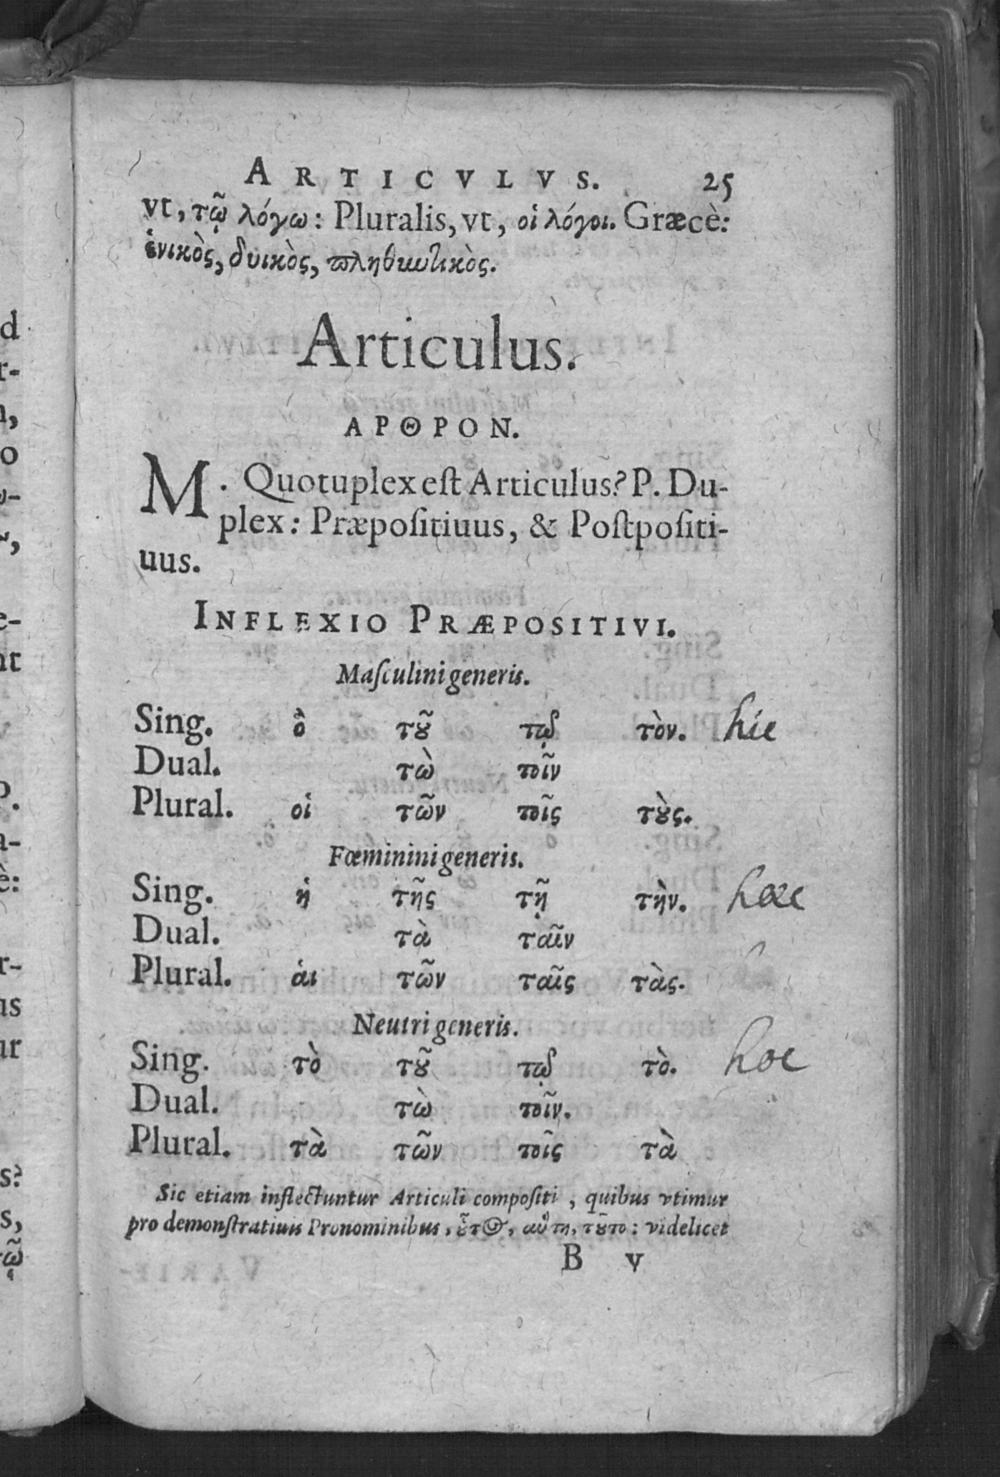 ARTICVLVS. 25
vt, τῷ λόγω: Pluralis, vt, οἱ λόγοι. Græcè:
ἑνικὸς, δυικὸς, πληθυντικὸς.
Articulus.
ΑΡΘΡΟΝ.
M. Quotuplex eſt Articulus? P. Du-
plex: Præpoſitiuus, & Poſtpoſiti-
uus.
INFLEXIO PRÆPOSITIVI.
Maſculini generis.
Sing. ὁ τȣ͂ τῷ τὸν. hic
Dual. τὼ τοῖν
Plural. οἱ τῶν τοῖς τȣ̀ς.
Fœminini generis.
Sing. ἡ τῆς τῇ τὴν. hæc
Dual. τὰ ταῖν
Plural. ἁι τῶν ταῖς τὰς.
Neutri generis.
Sing. τὸ τȣ͂ τῷ τὸ. hoc
Dual. τὼ τοῖν.
Plural. τὰ τῶν τοῖς τὰ
Sic etiam inflectuntur Articuli compoſiti, quibus vtimur
pro demonſtratiuis Pronominibus, ȣ̃τος, αὕτη, τȣ͂το: videlicet
B v